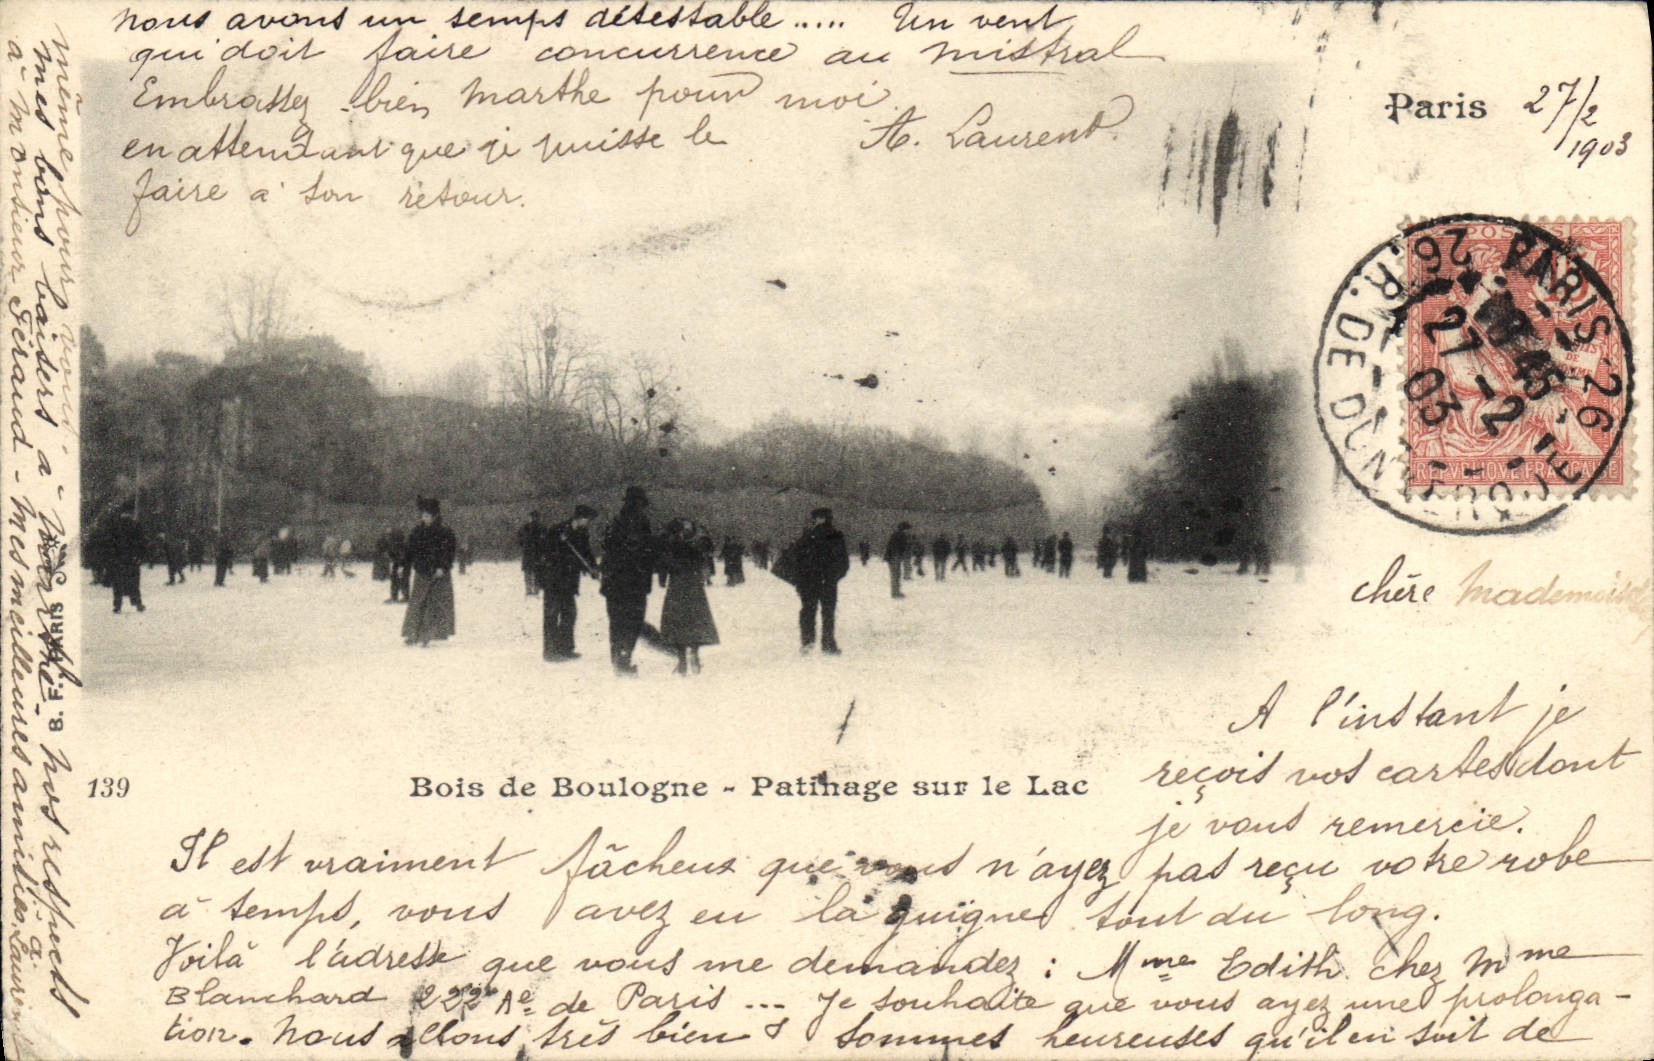 nous avons un temps détestable..... Un vent
qui doit faire concurrence au mistral
Embrassez bien Marthe pour moi
en attendant que je puisse le
faire à son retour.
A. Laurent.
Paris 27/2
1903
POSTES
PARIS 26
27 -2
03
26. R. DE DUNKERQUE
REPUBLIQUE FRANCAISE
chère Mademoiselle,
A l'instant je
reçois vos cartes dont
je vous remercie.
139
Bois de Boulogne - Patinage sur le Lac
Il est vraiment fâcheux que vous n'ayez pas reçu votre robe
à temps, vous avez eu la guigne tout du long.
Voilà l'adresse que vous me demandez : Mme Edith chez Mme
Blanchard 222 Ae de Paris ... Je souhaite que vous ayez une prolonga-
tion. Nous allons très bien & sommes heureuses qu'il en soit de
même pour vous -
mes bons baisers à Marthe - nos respects
à Monsieur Géraud - mes meilleures amitiés. A. Laurent
S. F. PARIS